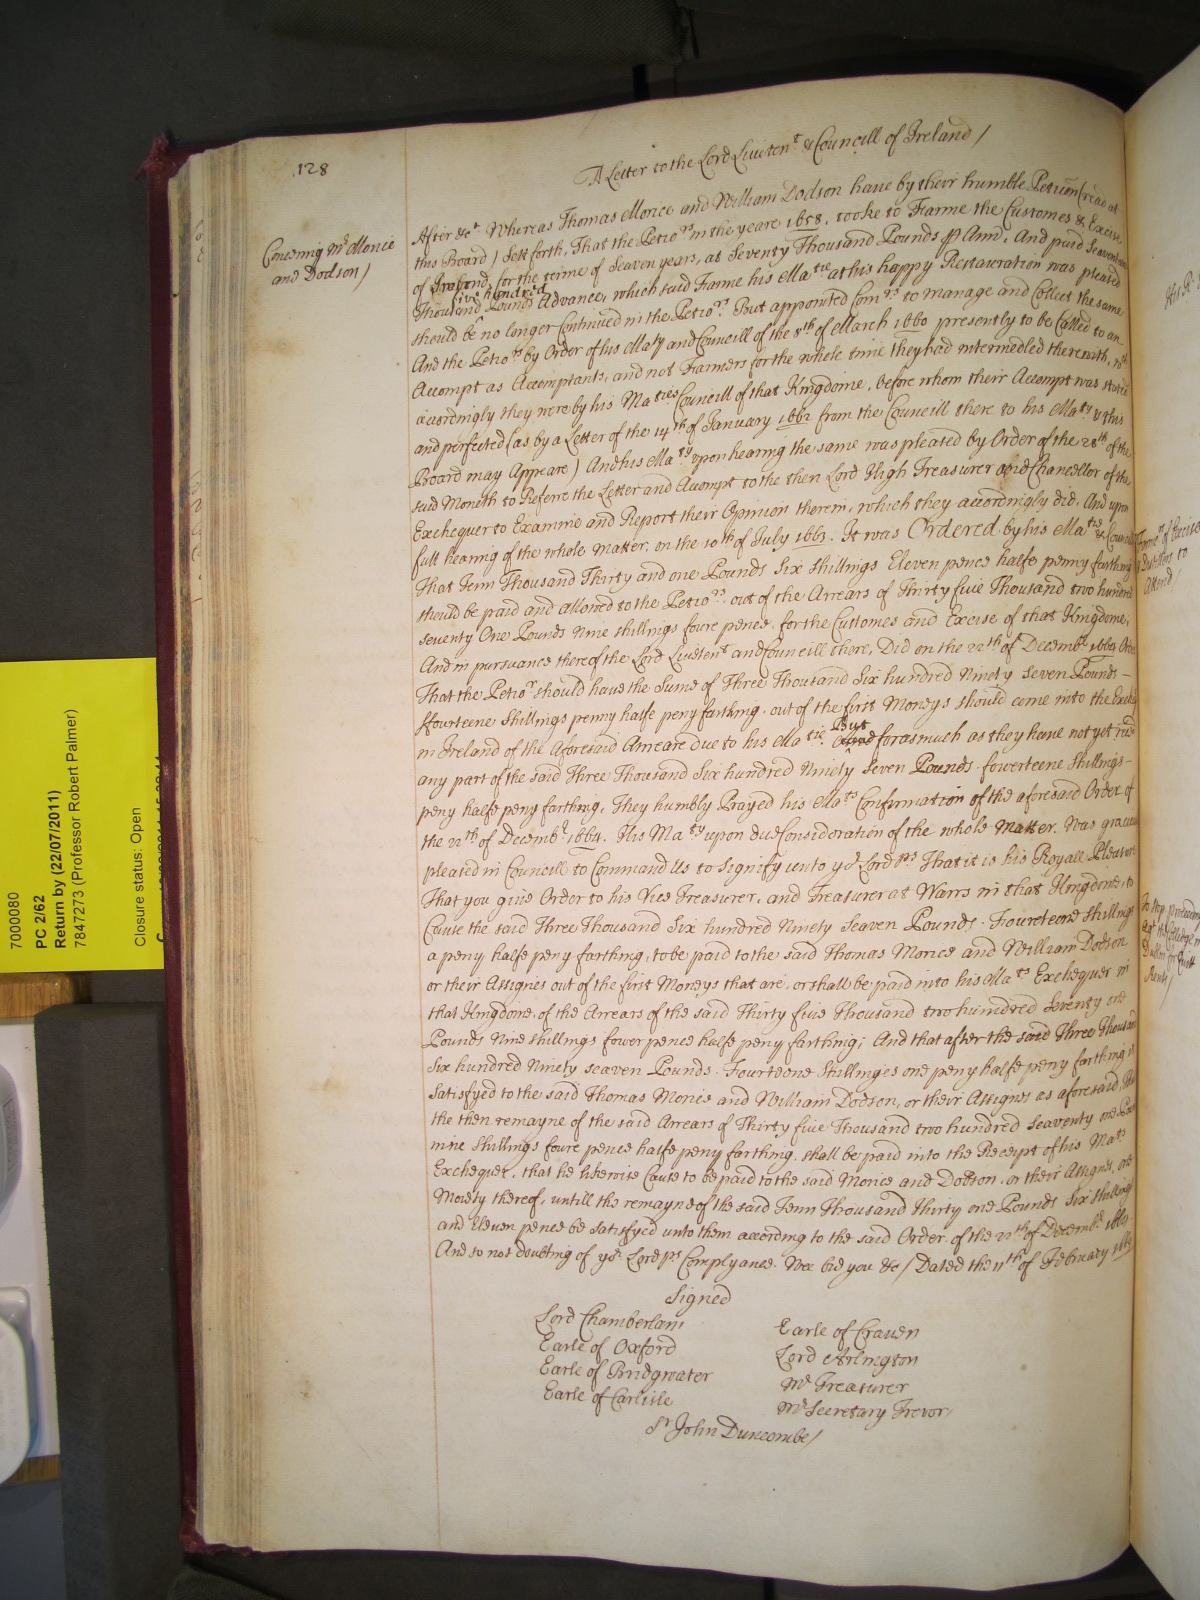 128
A Letter to the Lord Liuetent & Councill of Ireland /
Concerning Mr. Morice
and Dodson /
After &ct. Whereas Thomas Morice and William Dodson have by their humble Petition (read at
this Board) Sett forth, That the Petiors in the yeare 1658, tooke to Farme the Customes & Excise
of Ireland, for the terme of Seaven years, at Seventy Thousand Pounds p Ann, And paid Seaventeen
Thousand five hundred Pounds Advance, which said Farme his Matie at his happy Restauration was pleased
should be no longer Continued in the Petiors. But appointed Comrs to manage and Collect the same
And the Petiors by Order of his Maty and Councill of the 8th of March 1660 presently to be Called to an
Accompt as Accomptants, and not Farmers for the whole time they had intermedled therewith, wch
accordingly they were by his Maties Councill of that Kingdome, before whom their Accompt was stated
and perfected (as by a Letter of the 14th of January 1662 from the Councill there to his Maty & this
Board may Appeare) And his Maty upon hearing the same was pleased by Order of the 28th of the
said Moneth to Referre the Letter and Accompt to the then Lord High Treasurer and Chancellor of the
Exchequer to Examine and Report their Opinion therein, which they accordingly did, And upon
full hearing of the whole Matter, on the 10th of July 1663. It was Ordered by his Matie & Councill
That Tenn Thousand Thirty and one Pounds Six shillings Eleven pence halfe penny farthing
should be paid and allowed to the Petiors. out of the Arrears of Thirty five Thousand two hundred
seventy One Pounds Nine shillings foure pence, for the Customes and Excise of that Kingdome,
And in pursuance thereof the Lord Liuetent and Councill there, Did on the 22th of Decembr 1664 Order
That the Petiors should have the Sume of Three Thousand Six hundred Ninety Seven Pounds –
ffourteene Shillings penny halfe peny farthing. out of the first Moneys should come into the Excheqr
in Ireland of the Aforesaid Arreare due to his Matie. But forasmuch as they have not yet recd
any part of the said Three Thousand Six hundred Ninety Seven Pounds. fowerteene Shillings –
peny halfe peny farthing, They humbly Prayed his Mats Confirmation of the aforesaid Order of
the 22th of Decembr. 1664. His Maty upon due Consideration of the whole Matter. Was graciously
pleased in Councill to Command Us to Signify unto yor Lordps That it is his Royall Pleasure
That you give Order to his Vice Treasurer, and Treasurer at Warrs in that Kingdome, to
Cause the said Three Thousand Six hundred Ninety Seaven Pounds. Foureteene shillings
a peny halfe peny farthing, to be paid to the said Thomas Morice and William Dodson
or their Assignes out of the first Moneys that are, or shall be paid into his Mats Exchequer in
that Kingdome, of the Arrears of the said Thirty five Thousand two hundred Seventy one
Pounds Nine shillings fower pence halfe peny farthing; And that after the said Three Thousand
Six hundred Ninety seaven Pounds. Fourteene Shillings one peny halfe peny farthing is
Satisfyed to the said Thomas Morice and William Dodson, or their Assignes as aforesaid,
the then remayne of the said Arrears of Thirty five Thousand two hundred Seaventy one Pounds
nine shillings foure pence halfe peny farthing. shall be paid into the Receipt of his Mats
Exchequer, that he likewise Cause to be paid to the said Morice and Dodson, or their Assignes, one
Moiety thereof, untill the remayne of the said Tenn Thousand Thirty one Pounds Six shillings
and Eleven pence be satisfyed unto them according to the said Order of the 22th of Decembr 1664
And so not doubting of yor. Lordps Complyance. Wee bid you &c / Dated the 11th of February
Signed
Lord Chamberlain
Earle of Oxford
Earle of Bridgwater
Earle of Carlisle
Earle of Craven
Lord Arlington
Mr Treasurer
Mr Secretary Trevor
Sr John Duncombe /
Farmers of Excise
Attend
To stop proceedings
agt the Colledge in
Dublin for Quitt
Rents /
7000080
PC 2/62
Return by (22/07/2011)
7847273 (Professor Robert Palmer)
Closure status: Open